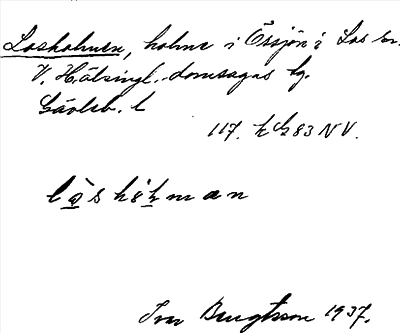 Losholmen, holme i Örsjön i Los sn.
V. Hälsingl. domsagas tg.
Gävleb. l
117. h 83 NV.
lòshòlman
Ivar Bengtsson 1937.